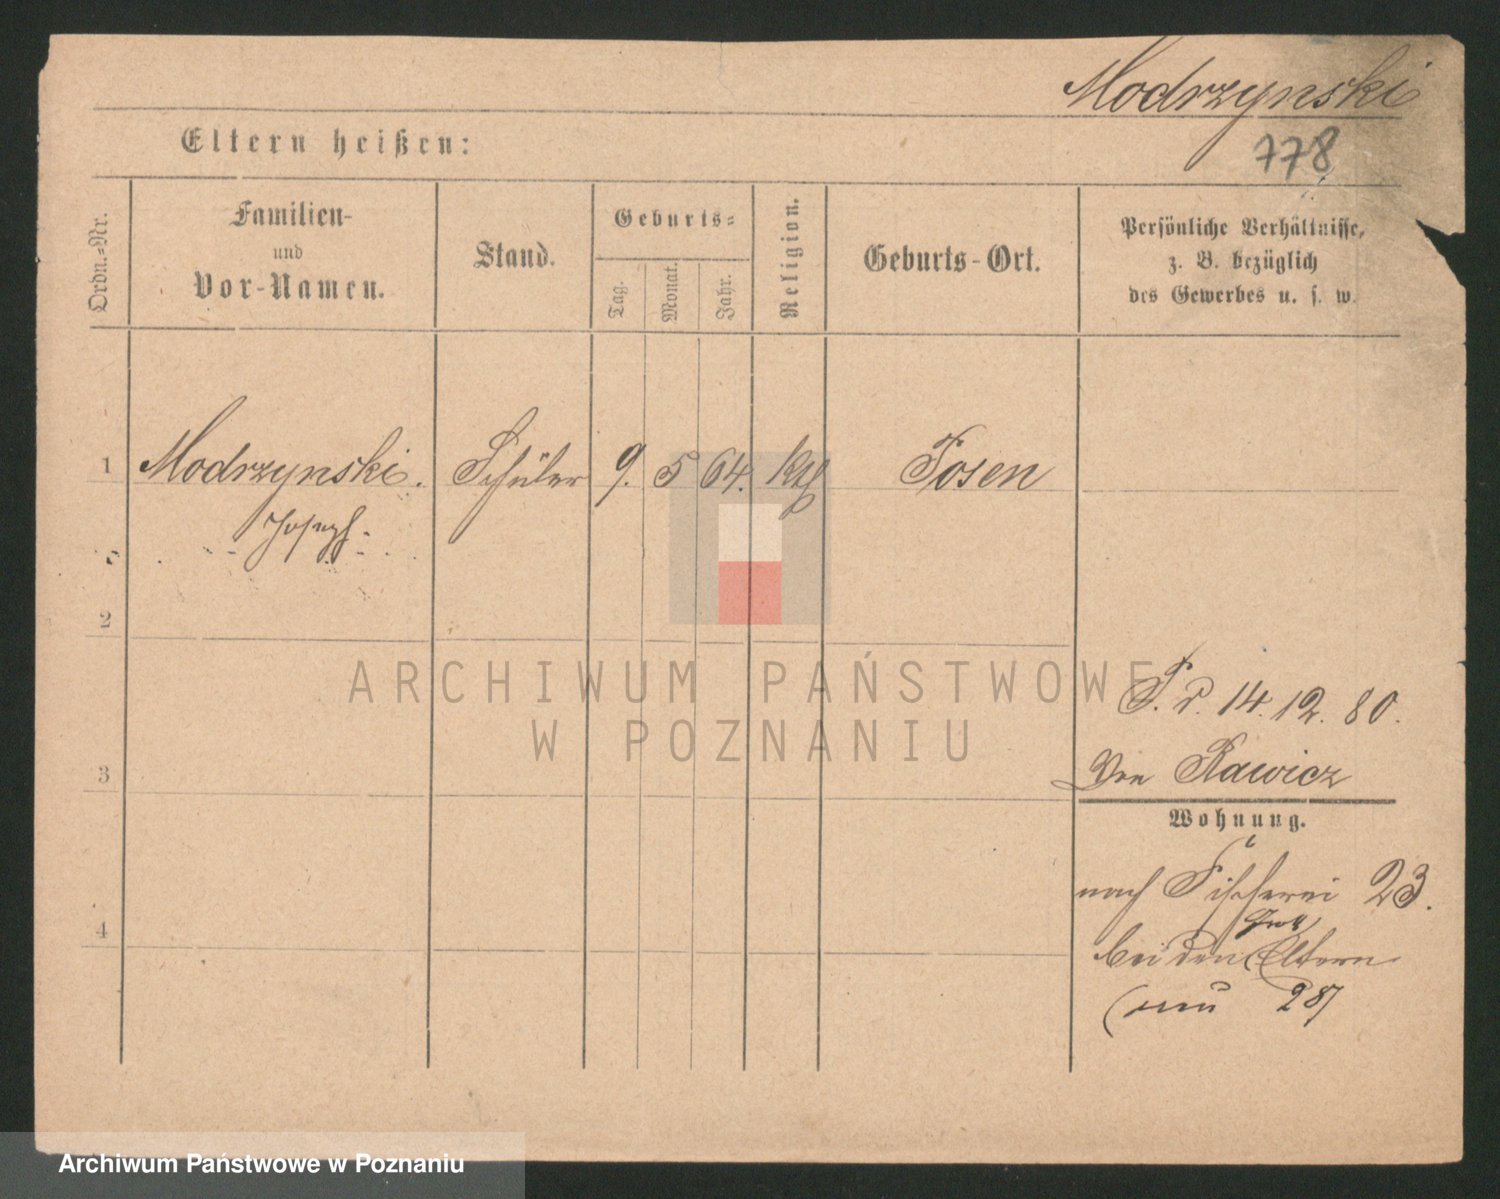 Modrzynski
778
Eltern heißen:
Ordn.-Nr.
Familien-
und
Vor-Namen.
Stand.
Geburts-
Tag.
Monat.
Jahr.
Religion.
Geburts-Ort.
Persönliche Verhältnisse,
z. B. bezüglich
des Gewerbes u. s. w.
1 Modrzynski. Schüler 9. 5 64. Posen
Joseph
2
ARCHIWUM PAŃSTWOWE
W POZNANIU
14. 12. 80.
3
von Rawicz
Wohnung.
nach Fischerei 23.
4
bei den Eltern
287
Archiwum Państwowe w Poznaniu